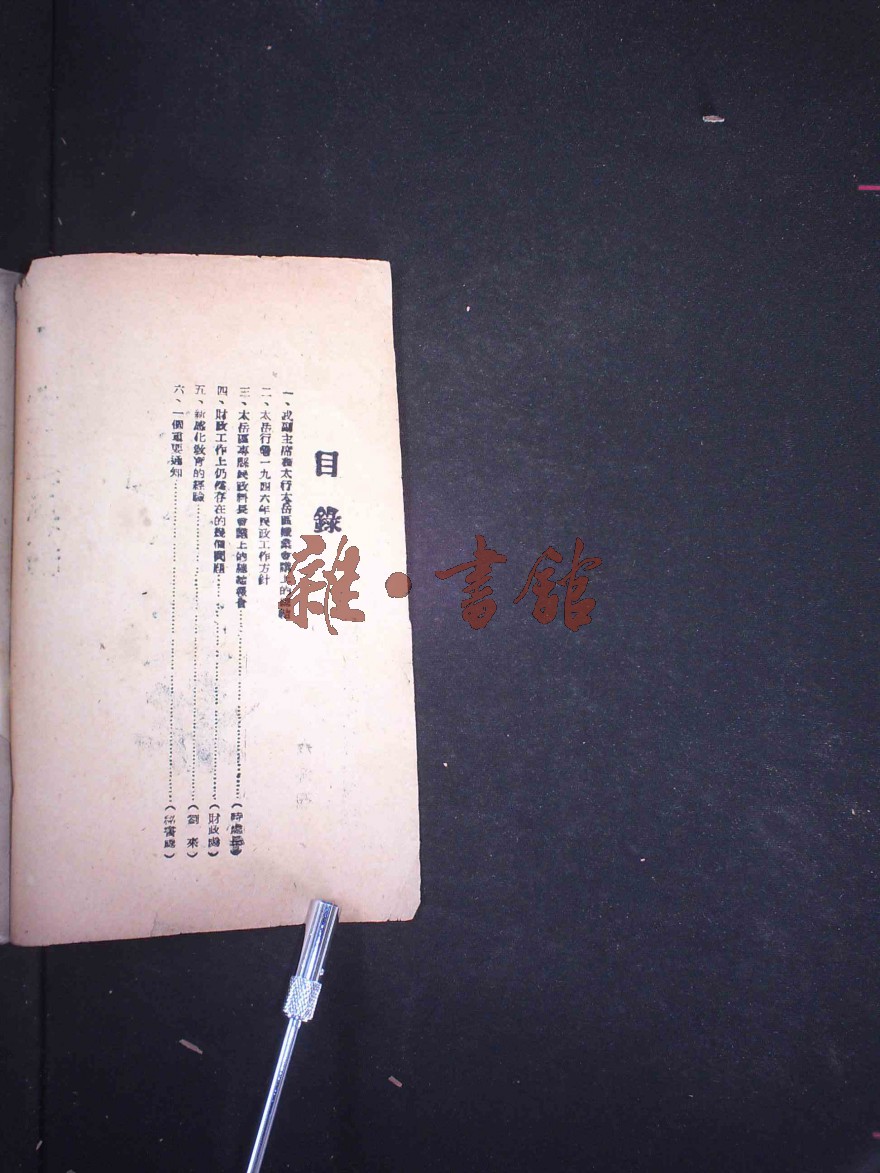 目錄
一、武副主席在太行太岳區農業會議上的總結
二、太岳行署一九四六年民政工作方針
三、太岳區專縣民政科長會議上的總結報告……（時處長）
四、財政工作上仍舊存在的幾個問題……（財政處）
五、新感化教育的經驗……（劉 來）
六、一個重要通知……（秘書處）
雜·書館